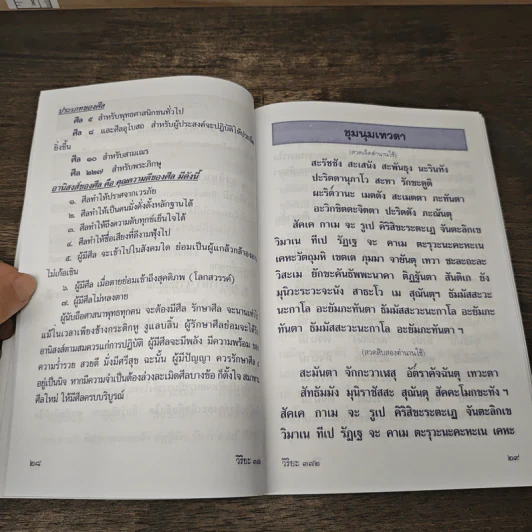 ประเภทของศีล
ศีล ๕ สำหรับพุทธศาสนิกชนทั่วไป
ศีล ๘ และศีลอุโบสถ สำหรับผู้ประสงค์จะปฏิบัติให้
ยิ่งขึ้น
ศีล ๑๐ สำหรับสามเณร
ศีล ๒๒๗ สำหรับพระภิกษุ
อานิสงส์ของศีล คือ คุณความดีของศีล มีดังนี้
๑. ศีลทำให้ปราศจากเวรภัย
๒. ศีลทำให้เป็นคนมั่งคั่งตั้งหลักฐานได้
๓. ศีลทำให้ถึงความดับทุกข์เย็นใจได้
๔. ศีลทำให้ชื่อเสียงที่ดีงามฟุ้งไป
๕. ผู้มีศีล จะเข้าไปในสังคมใด ย่อมเป็นผู้แกล้วกล้าอาจ
ไม่เก้อเขิน
๖. ผู้มีศีล เมื่อตายย่อมเข้าถึงสุคติภพ (โลกสวรรค์)
๗. ผู้มีศีลไม่หลงตาย
ผู้นับถือศาสนาพุทธทุกคน จะต้องมีศีล รักษาศีล จะนานเท่าไร
แม้ในเวลาเพียงช้างกระดิกหู งูแลบลิ้น ผู้รักษาศีลย่อมจะได้รับ
อานิสงส์ตามสมควรแก่การปฏิบัติ ผู้มีศีลจะมีพลัง มีความพร้อม
ความร่ำรวย สวยดี มั่งมีศรีสุข ฉะนั้น ผู้มีปัญญา ควรรักษาศีล
อยู่เป็นนิจ หากมีความจำเป็นต้องล่วงละเมิดศีลบางข้อ ก็ตั้งใจ สมาทาน
ศีลใหม่ ให้มีศีลครบบริบูรณ์
๒๘
วิริยะ ๓๗๒
ชุมนุมเทวดา
(สวดเจ็ดตำนานใช้)
สะรัชชัง สะเสนัง สะพันธุง นะรินทัง
ปะริตตานุภาโว สะทา รักขะตูติ
ผะริต๎วานะ เมตตัง สะเมตตา ภะทันตา
อะวิกขิตตะจิตตา ปะริตตัง ภะณันตุ
สัคเค กาเม จะ รูเป คิริสิขะระตะเฏ จันตะลิกเข
วิมาเน ทีเป รัฏเฐ จะ คาเม ตะรุวะนะคะหะเน
เคหะวัตถุมหิ เขตเต ภุมมา จายันตุ เทวา ชะละถะละ
วิสะเม ยักขะคันธัพพะนาคา ติฏฐันตา สันติเก ยัง
มุนิวะระวะจะนัง สาธะโว เม สุณันตุฯ ธัมมัสสะวะ
นะกาโล อะยัมภะทันตา ธัมมัสสะวะนะกาโล อะยัมภะ
ทันตา ธัมมัสสะวะนะกาโล อะยัมภะทันตา ฯ
(สวดสิบสองตำนานใช้)
สะมันตา จักกะวาเฬสุ อัต๎ราคัจฉันตุ เทวะตา
สัทธัมมัง มุนิราชัสสะ สุณันตุ สัคคะโมกขะทัง ฯ
สัคเค กาเม จะ รูเป คิริสิขะระตะเฏ จันตะลิกเข
วิมาเน ทีเป รัฏเฐ จะ คาเม ตะรุวะนะคะหะเน เคหะ
วิริยะ ๓๗๒
๒๙